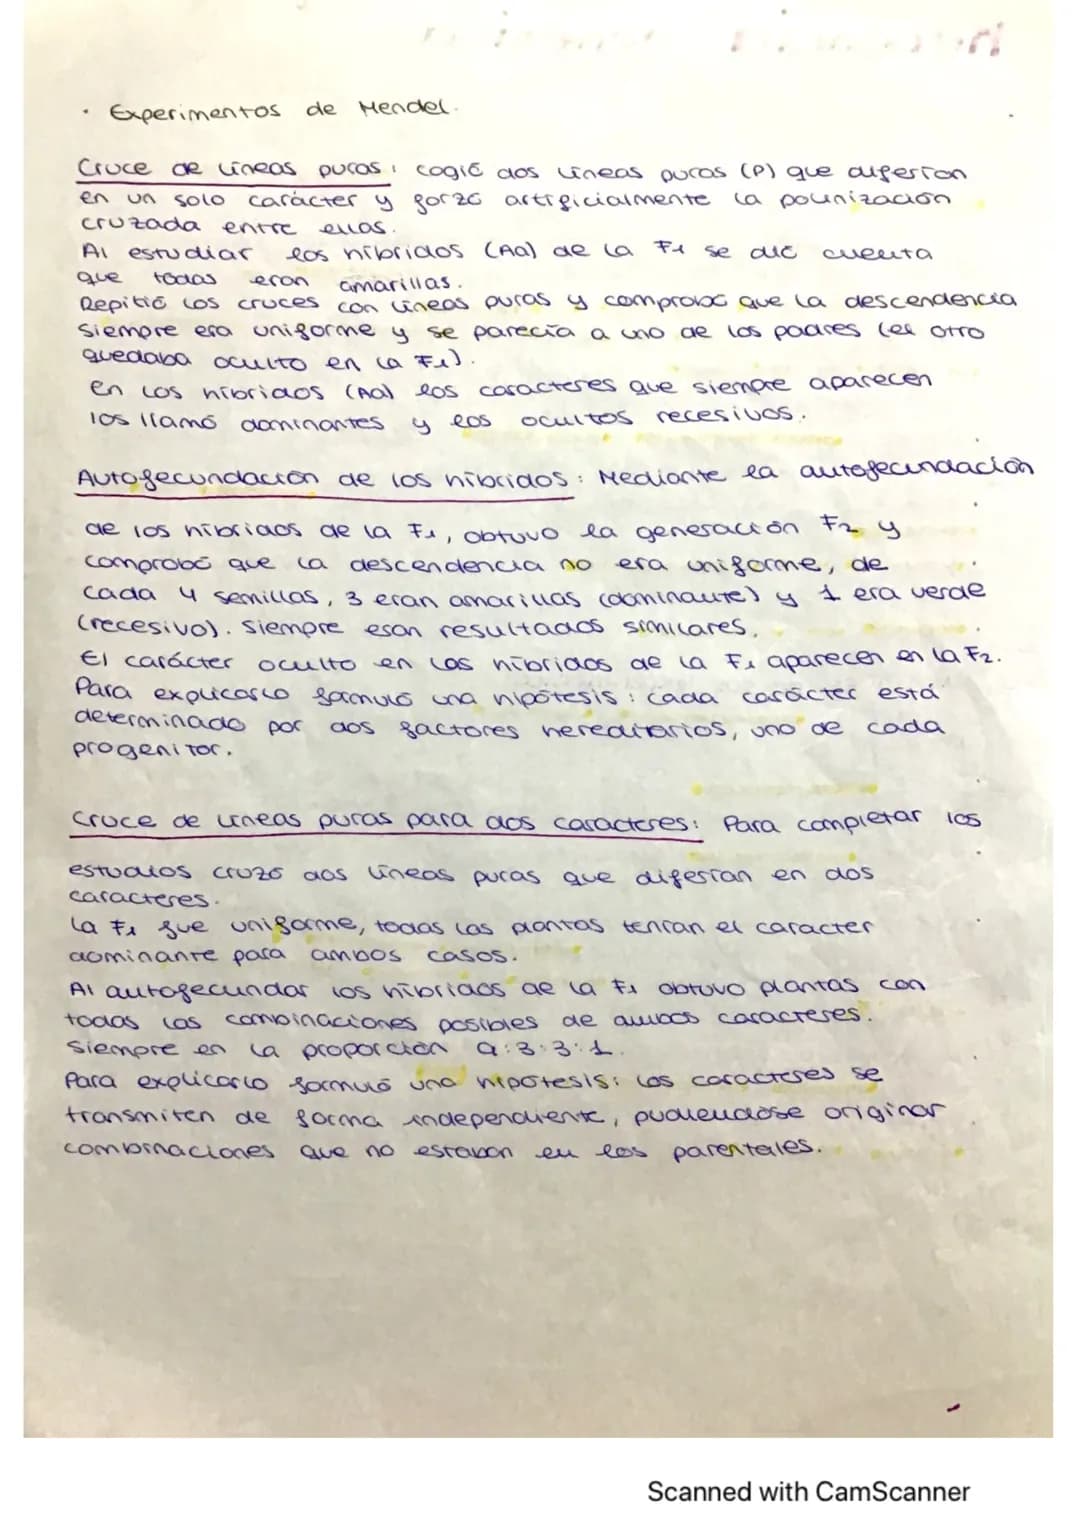 · Experimentos de Mendel.
Cruce de líneas puras: cogió dos líneas puras (P) que diferían
en un solo carácter y forzó artificialmente la polinización
cruzada entre ellas.
Al estudiar los híbridos (Aa) de la F1 se dió cuenta
que todas eran amarillas.
Repitió los cruces con líneas puras y comprobó que la descendencia
siempre era uniforme y se parecía a uno de los padres (el otro
quedaba oculto en la F1).
En los híbridos (Aa) los caracteres que siempre aparecen
los llamó dominantes y los ocultos recesivos.
Autofecundación de los híbridos: Mediante la autofecundación
de los híbridos de la F1, obtuvo la generación F2 y
comprobó que la descendencia no era uniforme, de
cada 4 semillas, 3 eran amarillas (dominante) y 1 era verde
(recesivo). Siempre eran resultados similares.
El carácter oculto en los híbridos de la F1 aparecen en la F2.
Para explicarlo formuló una hipótesis: cada carácter está
determinado por dos factores hereditarios, uno de cada
progenitor.
Cruce de líneas puras para dos caracteres: Para completar los
estudios cruzó dos líneas puras que diferían en dos
caracteres.
La F1 fue uniforme, todas las plantas tenían el caracter
dominante para ambos casos.
Al autofecundar los híbridos de la F1 obtuvo plantas con
todas las combinaciones posibles de ambos caracteres.
Siempre en la proporción 9:3:3:1.
Para explicarlo formuló una hipótesis: los caracteres se
transmiten de forma independiente, pudiendose originar
combinaciones que no estaban en los parentales.
Scanned with CamScanner